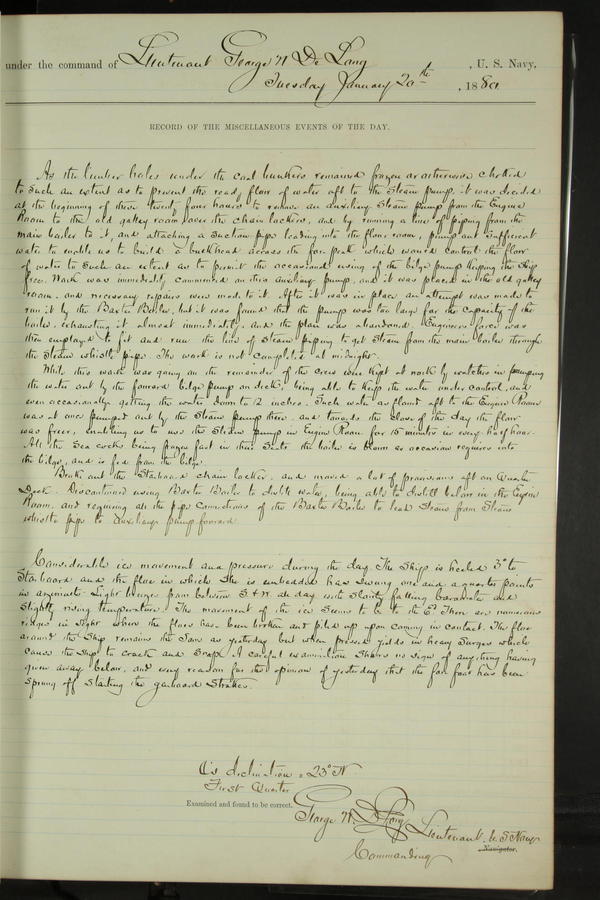 under the command of Lieutenant George W De Long , U. S. Navy,
Tuesday January 20th , 1880.
RECORD OF THE MISCELLANEOUS EVENTS OF THE DAY.
As the limber holes under the coal bunkers remained frozen or otherwise choked
to such an extent as to prevent the ready flow of water aft to the Steam pump, it was decided
at the beginning of these twenty four hours to remove an auxiliary Steam pump from the Engine
Room to the old galley room over the chain lockers, and by running a line of piping from the
main boiler to it, and attaching a suction pipe leading into the flour room, pump out sufficient
water to enable us to build a bulkhead across the fore peak which would control the flow
of water to such an extent as to permit the occasional using of the bilge pump keeping the ship
free. Work was immediately commenced on this auxiliary pump, and it was placed in the old galley
room, and necessary repairs were made to it. After it was in place an attempt was made to
run it by the Baxter Boiler, but it was found that the pump was too large for the capacity of the
boiler, exhausting it almost immediately, and the plan was abandoned. Engineers force was
then employed to fit and run the line of steam piping to get steam from the main boiler through
the Steam whistle pipe. The work is not completed at midnight.
While this work was going on the remainder of the crew were kept at work by watches in pumping
the water out by the forward bilge pump on deck, being able to keep the water under control, and
even occasionally getting the water down to 12 inches. Such water as flowed aft to the Engine Room
was at once pumped out by the Steam pump there, and towards the close of the day the flow
was freer, enabling us to use the Steam pump in Engine Room for 15 minutes in every half hour.
All the sea cocks being frozen fast in their seats the boiler is blown as occasion requires into
the bilge, and is fed from the bilge.
Broke out the Starboard chain locker, and moved a lot of provisions aft on Quarter
Deck. Discontinued using Baxter Boiler to distill water, being able to distill below in the Engine
Room, and requiring all the pipe connections of the Baxter Boiler to lead Steam from Steam
whistle pipe to auxiliary pump forward.
Considerable ice movement and pressure during the day. The Ship is heeled 3° to
Starboard and the floe in which she is imbedded has swung one and a quarter points
in azimuth. Light breezes from between S & W. all day with slowly falling barometer and
slightly rising temperature. The movement of the ice seems to be to the Ed. There are numerous
ridges in sight where the floes have been broken and piled up upon coming in contact. The floe
around the Ship remains the same as yesterday but when pressed yields in heavy surges which
cause the ship to crack and snap. A careful examination shows no sign of anything having
given away below, and every reason for the opinion of yesterday that the fore foot has been
sprung off starting the garboard strakes.
☾'s declination = 23° N
First Quarter
Examined and found to be correct.
George W. De Long Lieutenant, U. S Navy
Navigator.
Commanding